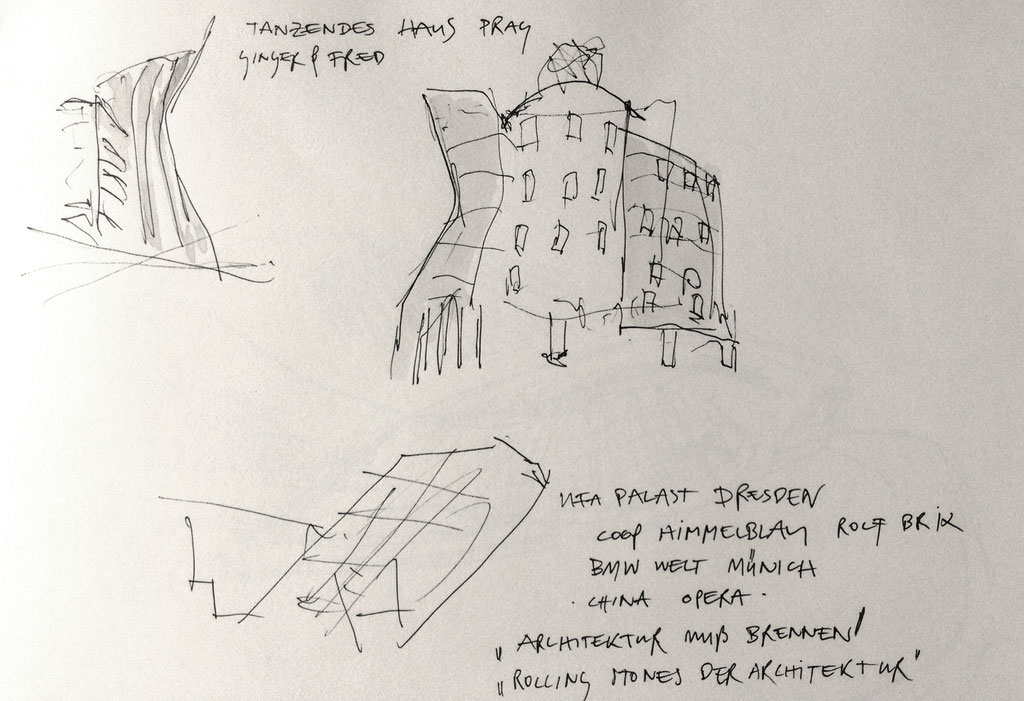 TANZENDES HAUS PRAG
GINGER & FRED
UFA PALAST DRESDEN
COOP HIMMELBLAU ROLF BRIX
BMW WELT MÜNICH
· CHINA OPERA ·
„ARCHITEKTUR MUß BRENNEN"
„ROLLING STONES DER ARCHITEKTUR"